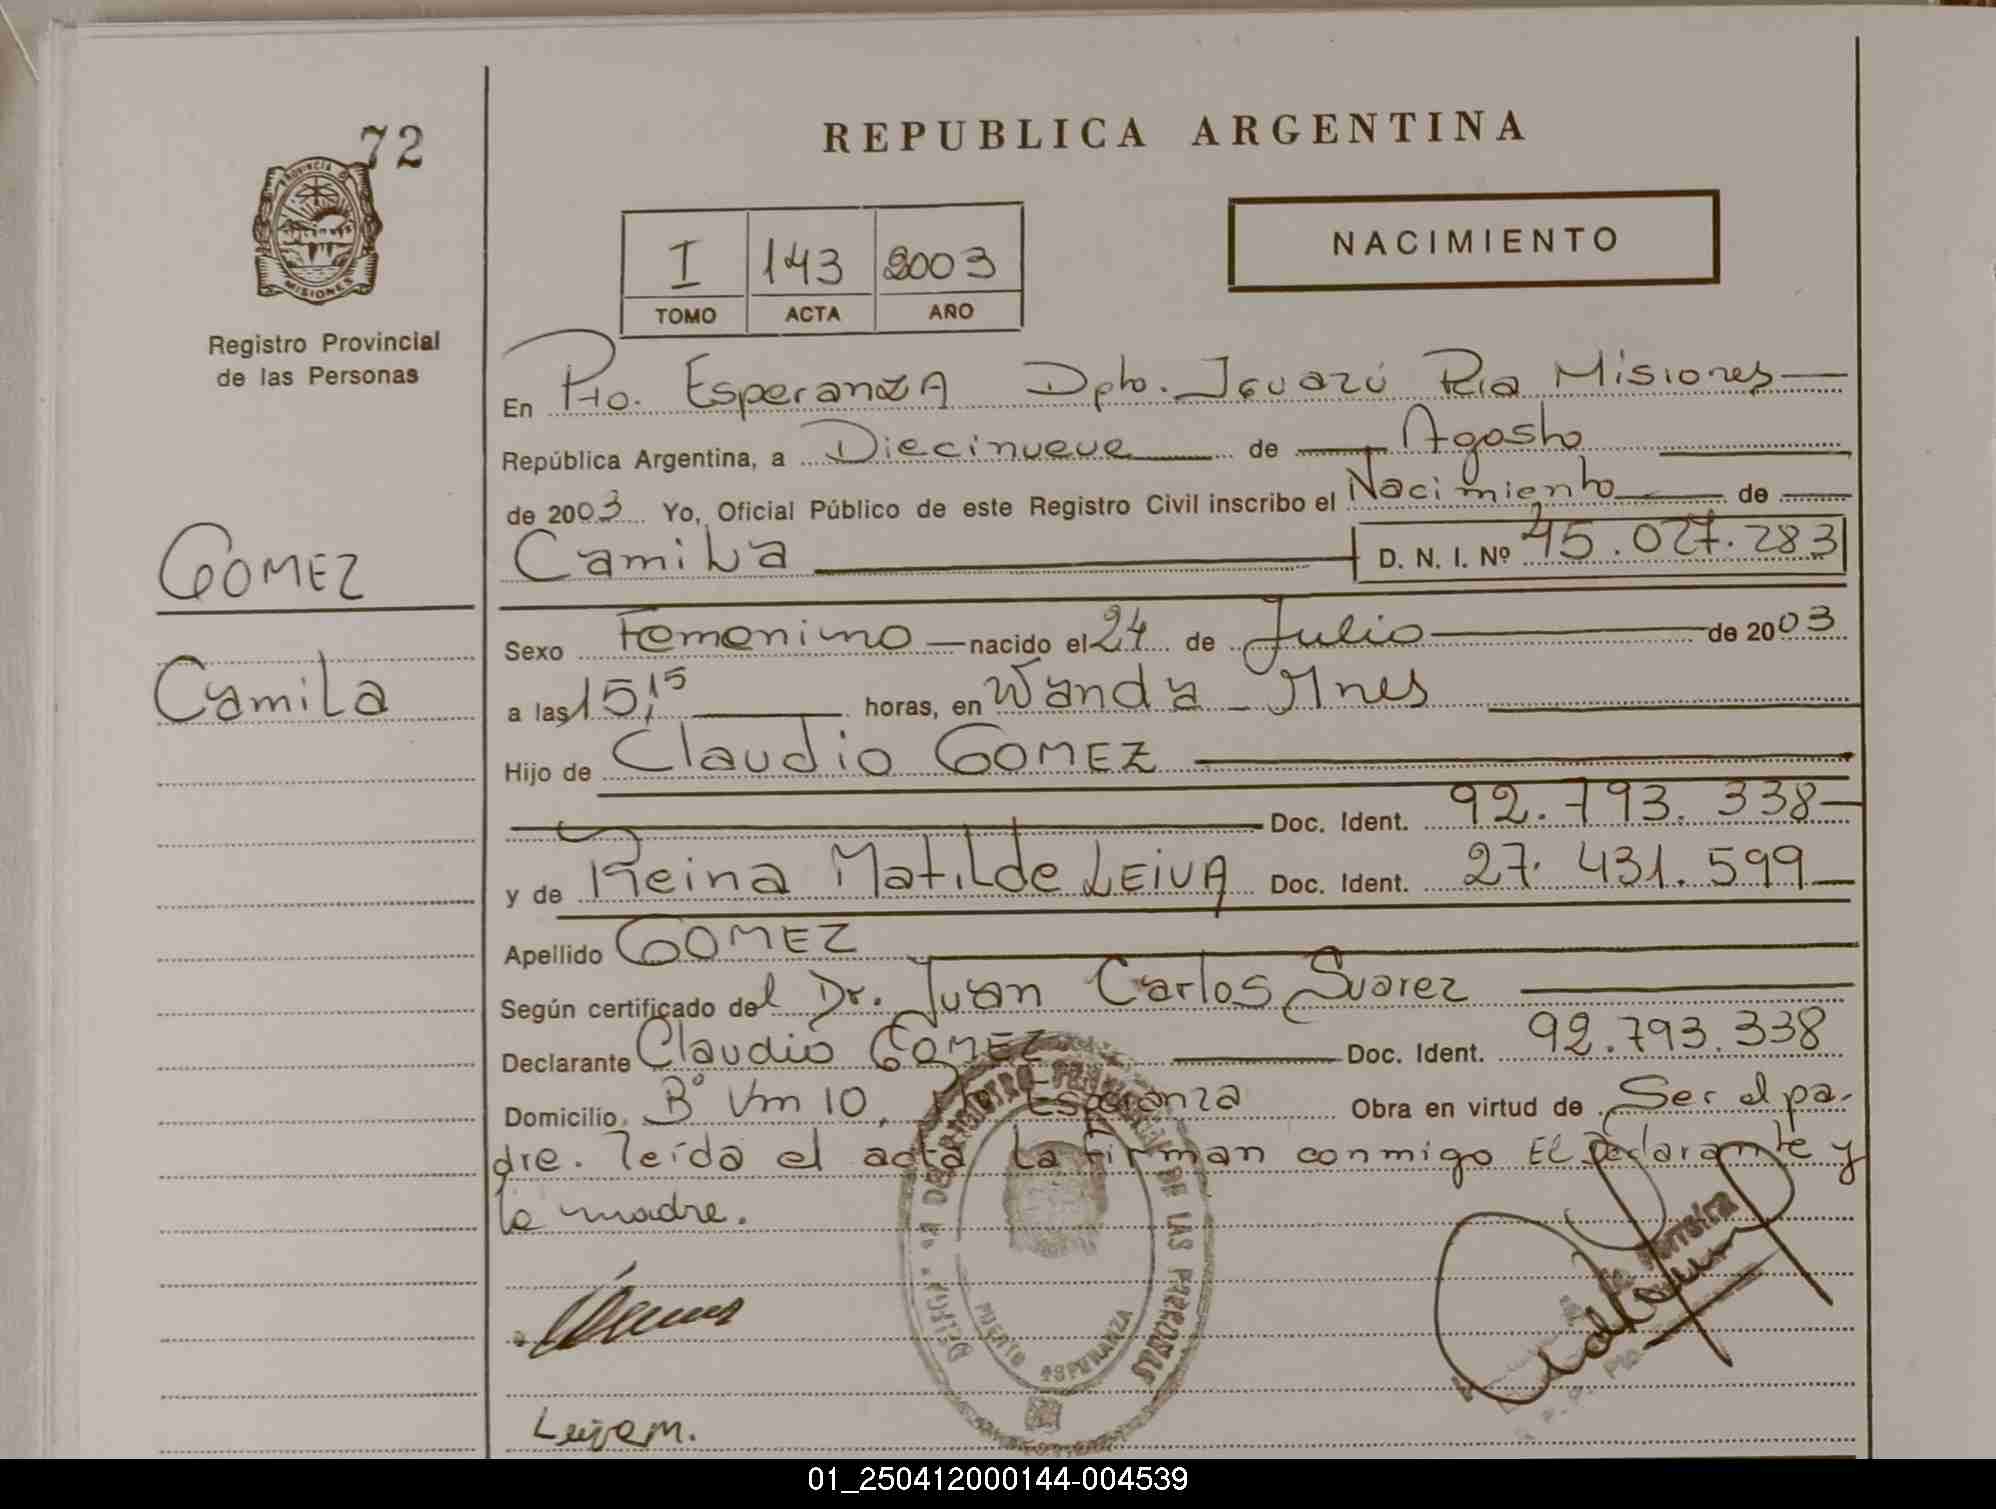 72
PROVINCIA D
MISIONES
Registro Provincial
de las Personas
GOMEZ
Camila
REPUBLICA ARGENTINA
I 143 2003
TOMO ACTA AÑO
NACIMIENTO
En Pto. Esperanza Dpto. Iguazú Pcia Misiones
República Argentina, a Diecinueve de Agosto
de 2003 Yo, Oficial Público de este Registro Civil inscribo el Nacimiento de
Camila D. N. I. Nº 45.027.283
Sexo Femenino nacido el 24 de Julio de 2003
a las 15,15 horas, en Wanda - Mnes
Hijo de Claudio GOMEZ
Doc. Ident. 92.793.338
y de Reina Matilde LEIVA Doc. Ident. 27.431.599
Apellido GOMEZ
Según certificado del Dr. Juan Carlos Suarez
Declarante Claudio GOMEZ Doc. Ident. 92.793.338
Domicilio, Bº Vm 10, Pto Esperanza Obra en virtud de Ser el pa-
dre. leída el acta la firman conmigo El Declarante y
la madre.
DE LAS PERSONAS
PUERTO ESPERANZA
Leiva M.
01_250412000144-004539